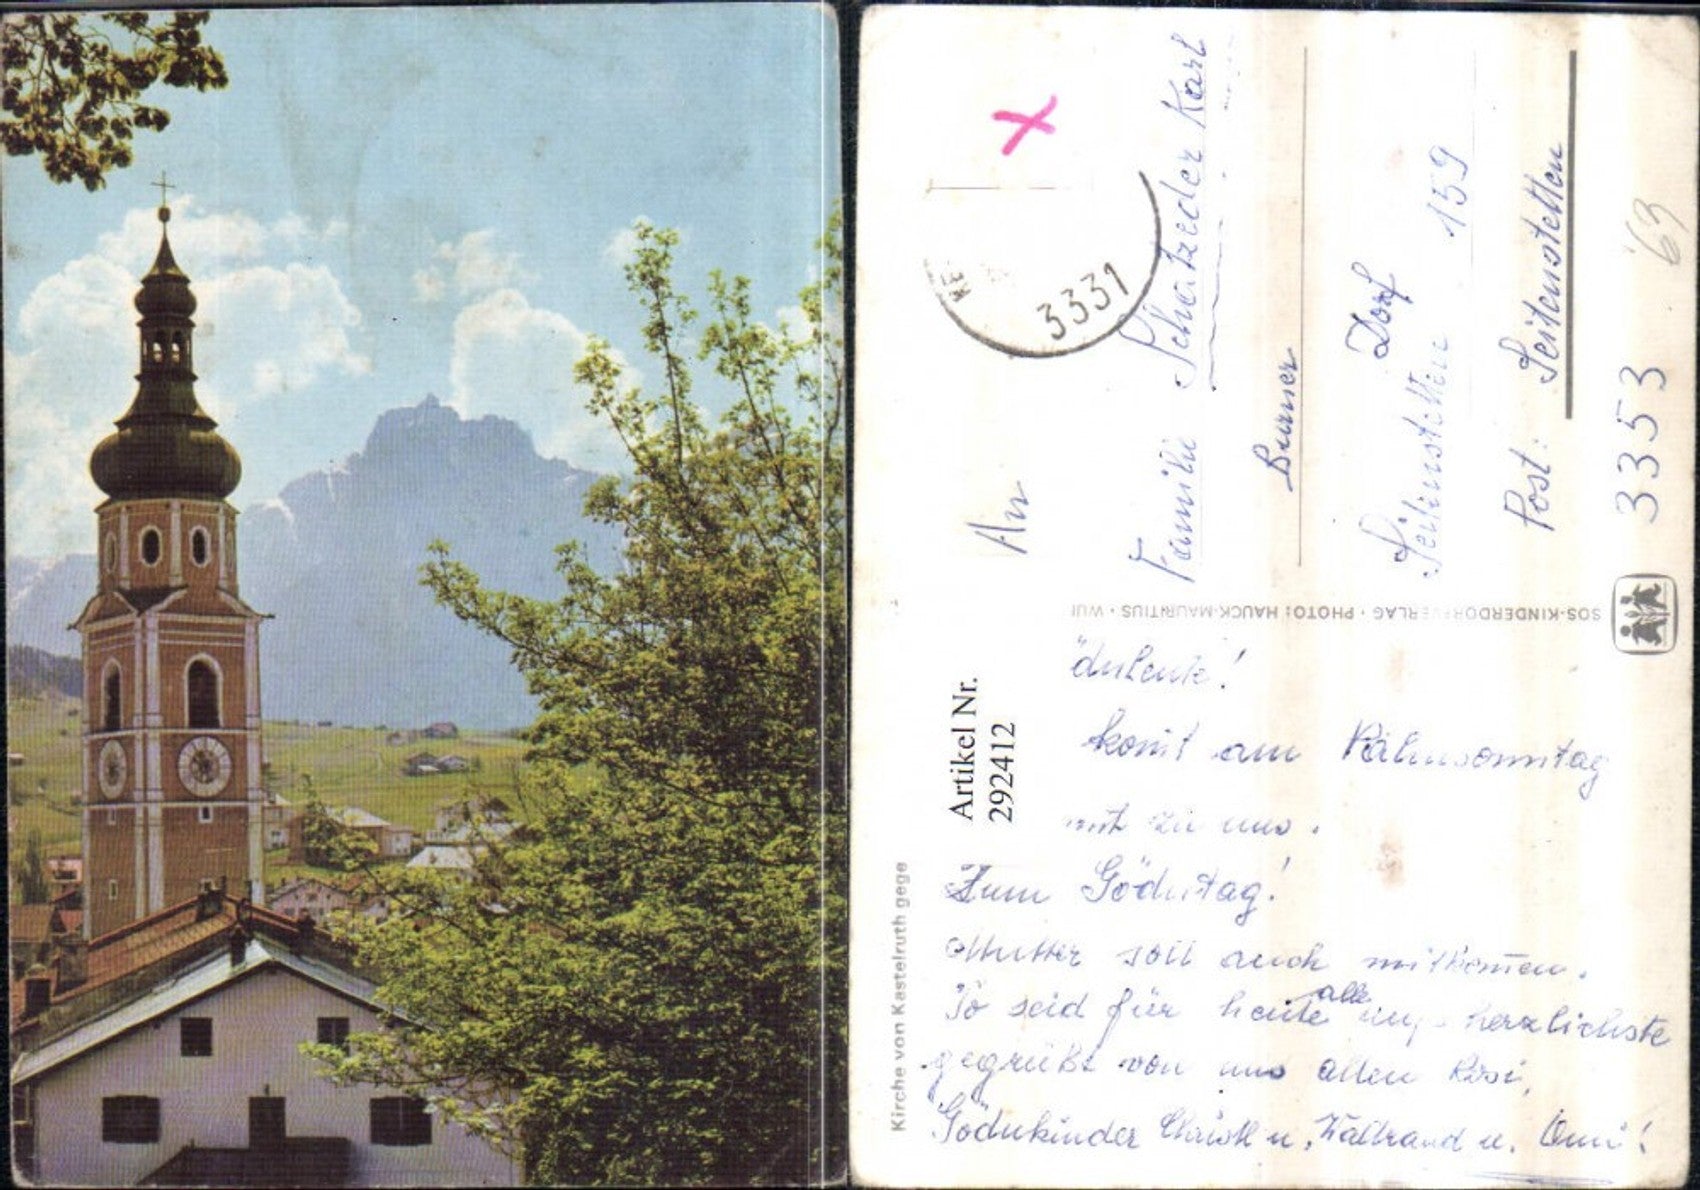 An
Familie Schatzeder Karl
Bauer
Dorf
Seitenstetten 159
Post: Seitenstetten
3353
'69
X
3331
SOS-KINDERDORF-VERLAG · PHOTO: HAUCK-MAURITIUS ·
Artikel Nr.
292412
Kirche von Kastelruth gege
komt am Palmsonntag
mit zu uns.
Zum Gödntag!
Mutter soll auch mitkomen.
So seid für heute alle herzlichste
gegrüßt von uns allen Rosi,
Gödnkinder Christl u. Waltraud u. Omi!